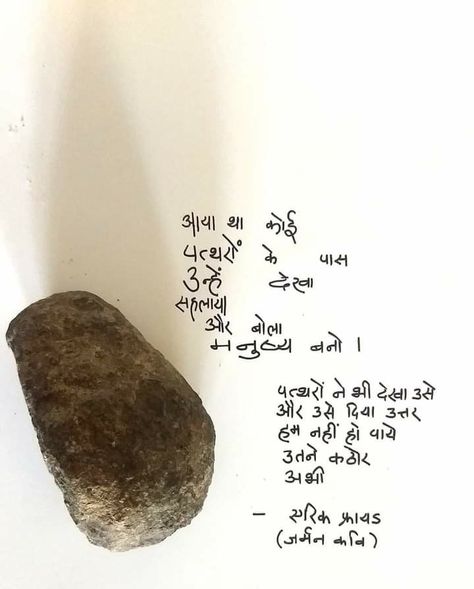 आया था कोई
पत्थरों के पास
उन्हें देखा
सहलाया
और बोला
मनुष्य बनो ।
पत्थरों ने भी देखा उसे
और उसे दिया उत्तर
हम नहीं हो पाये
उतने कठोर
अभी
- एरिक फ्रायड
(जर्मन कवि)